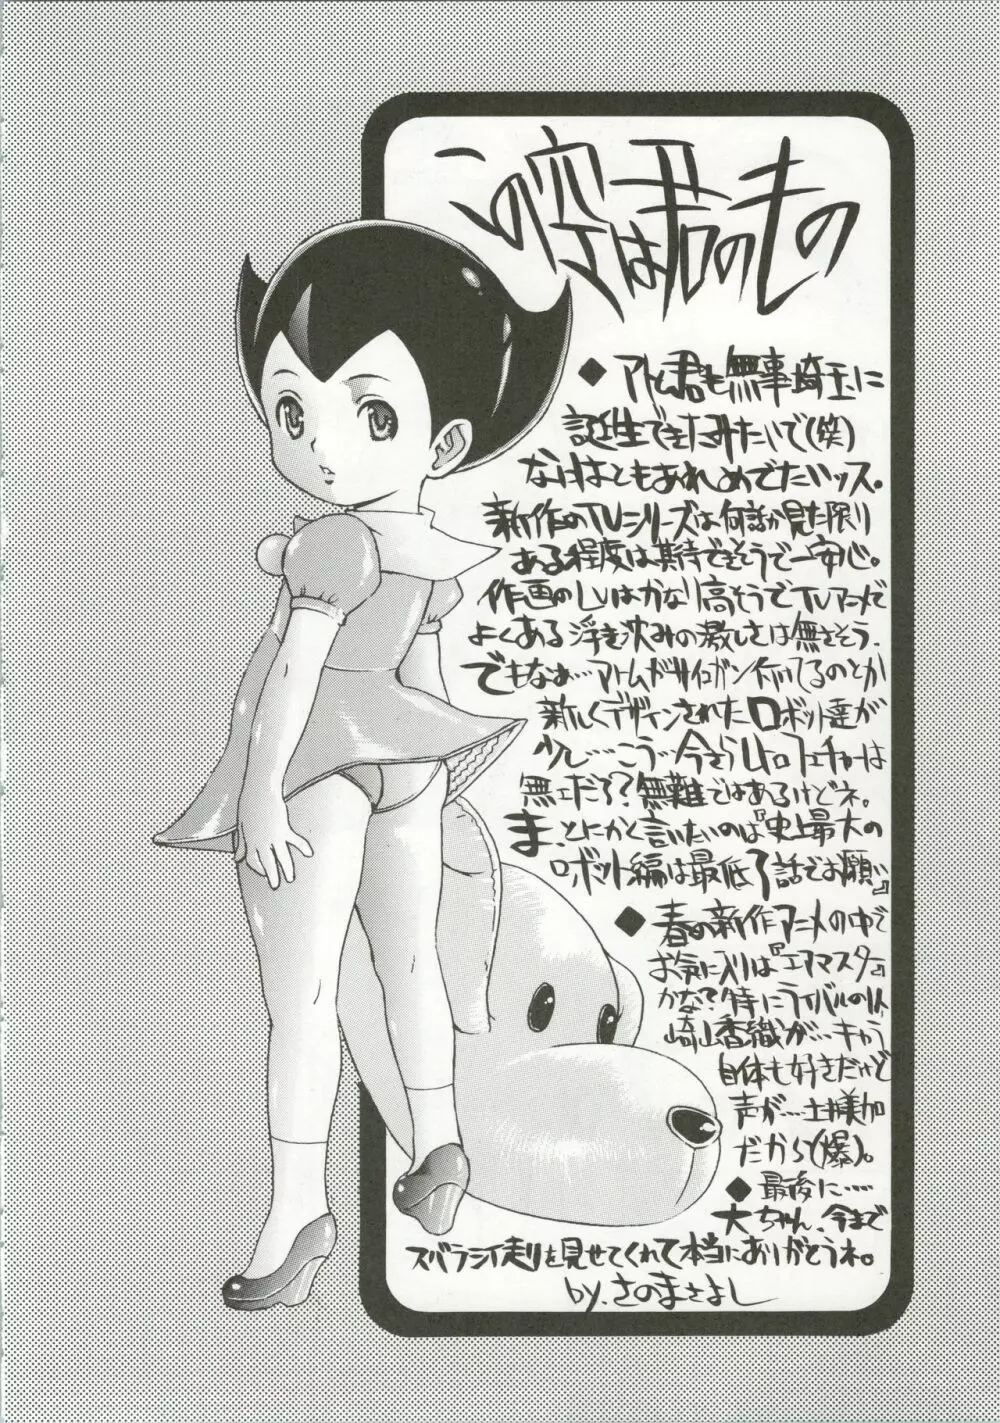 この空は君のもの
◆アトム君も無事埼玉に
誕生できたみたいで(笑)
なにはともあれめでたいッス。
新作のTVシリーズは何話か見た限り
ある程度は期待できそうで一安心。
作画のLVはかなり高そうでTVアニメで
よくある浮き沈みの激しさは無さそう。
でもなぁ…アトムがサイコガン付けてるのとか
新しくデザインされたロボット達が
少し…こう…今さらレトロフューチャーは
無ェだろ?無難ではあるけどネ。
ま、とにかく言いたいのは『史上最大の
ロボット編は最低7話でお願い』
◆春の新作アニメの中で
お気に入りは『エアマスター』
かな?特にライバルの
崎山香織が…キャラ
自体も好きだけど
声が…土様加
だから(爆)。
◆最後に……
大ちゃん、今まで
スバラシイ走りを見せてくれて本当にありがとうネ。
by.さのまさよし